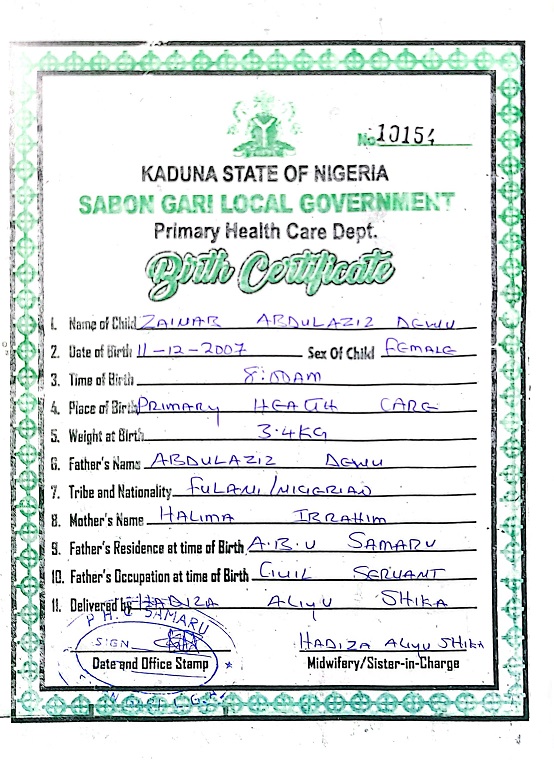 No 10154
KADUNA STATE OF NIGERIA
SABON GARI LOCAL GOVERNMENT
Primary Health Care Dept.
Birth Certificate
1. Name of Child ZAINAB ABDULAZIZ DEWU
2. Date of Birth 11-12-2007 Sex Of Child FEMALE
3. Time of Birth 8:00AM
4. Place of Birth PRIMARY HEALTH CARE
5. Weight at Birth 3.4KG
6. Father's Name ABDULAZIZ DEWU
7. Tribe and Nationality FULANI/NIGERIAN
8. Mother's Name HALIMA IBRAHIM
9. Father's Residence at time of Birth A.B.U SAMARU
10. Father's Occupation at time of Birth CIVIL SERVANT
11. Delivered by HADIZA ALIYU SHIKA
P.H.C SAMARU
SIGN
HADIZA ALIYU SHIKA
Date and Office Stamp Midwifery/Sister-in-Charge
L.G.A